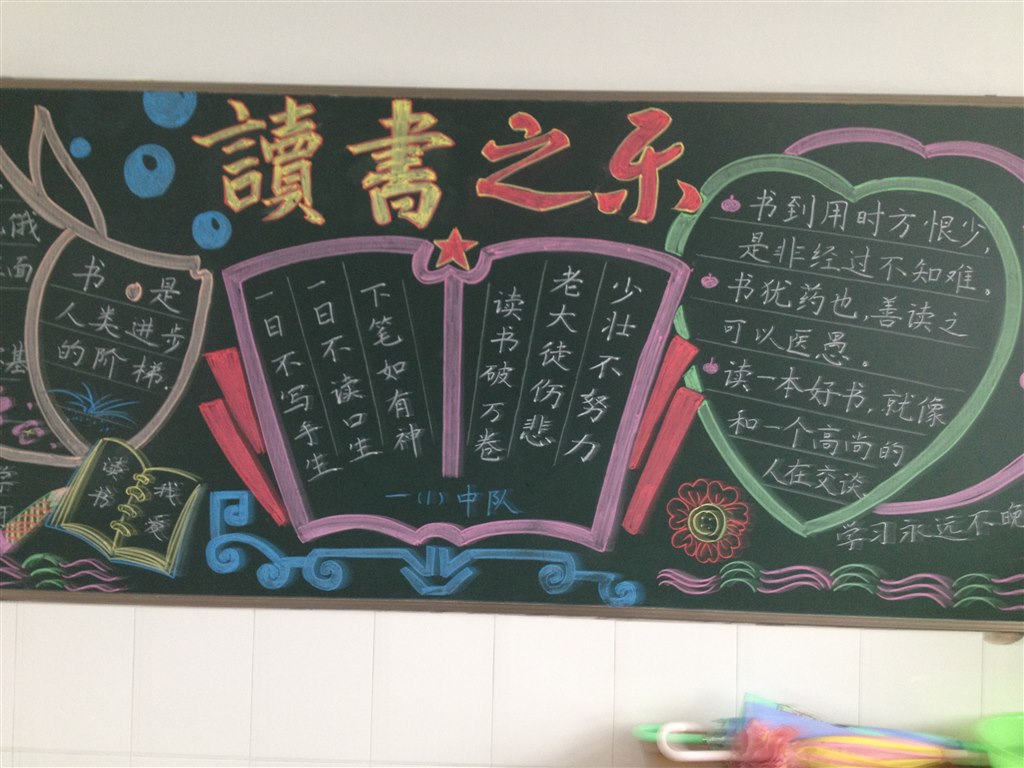 讀書之乐
俄
面
基
书是
人类进步
的阶梯.
读书
我爱
少壮不努力
老大徒伤悲
读书破万卷
下笔如有神
一日不读口生
一日不写手生
一(1)中队
书到用时方恨少,
是非经过不知难。
书犹药也,善读之
可以医愚。
读一本好书,就像
和一个高尚的
人在交谈
学习永远不晚